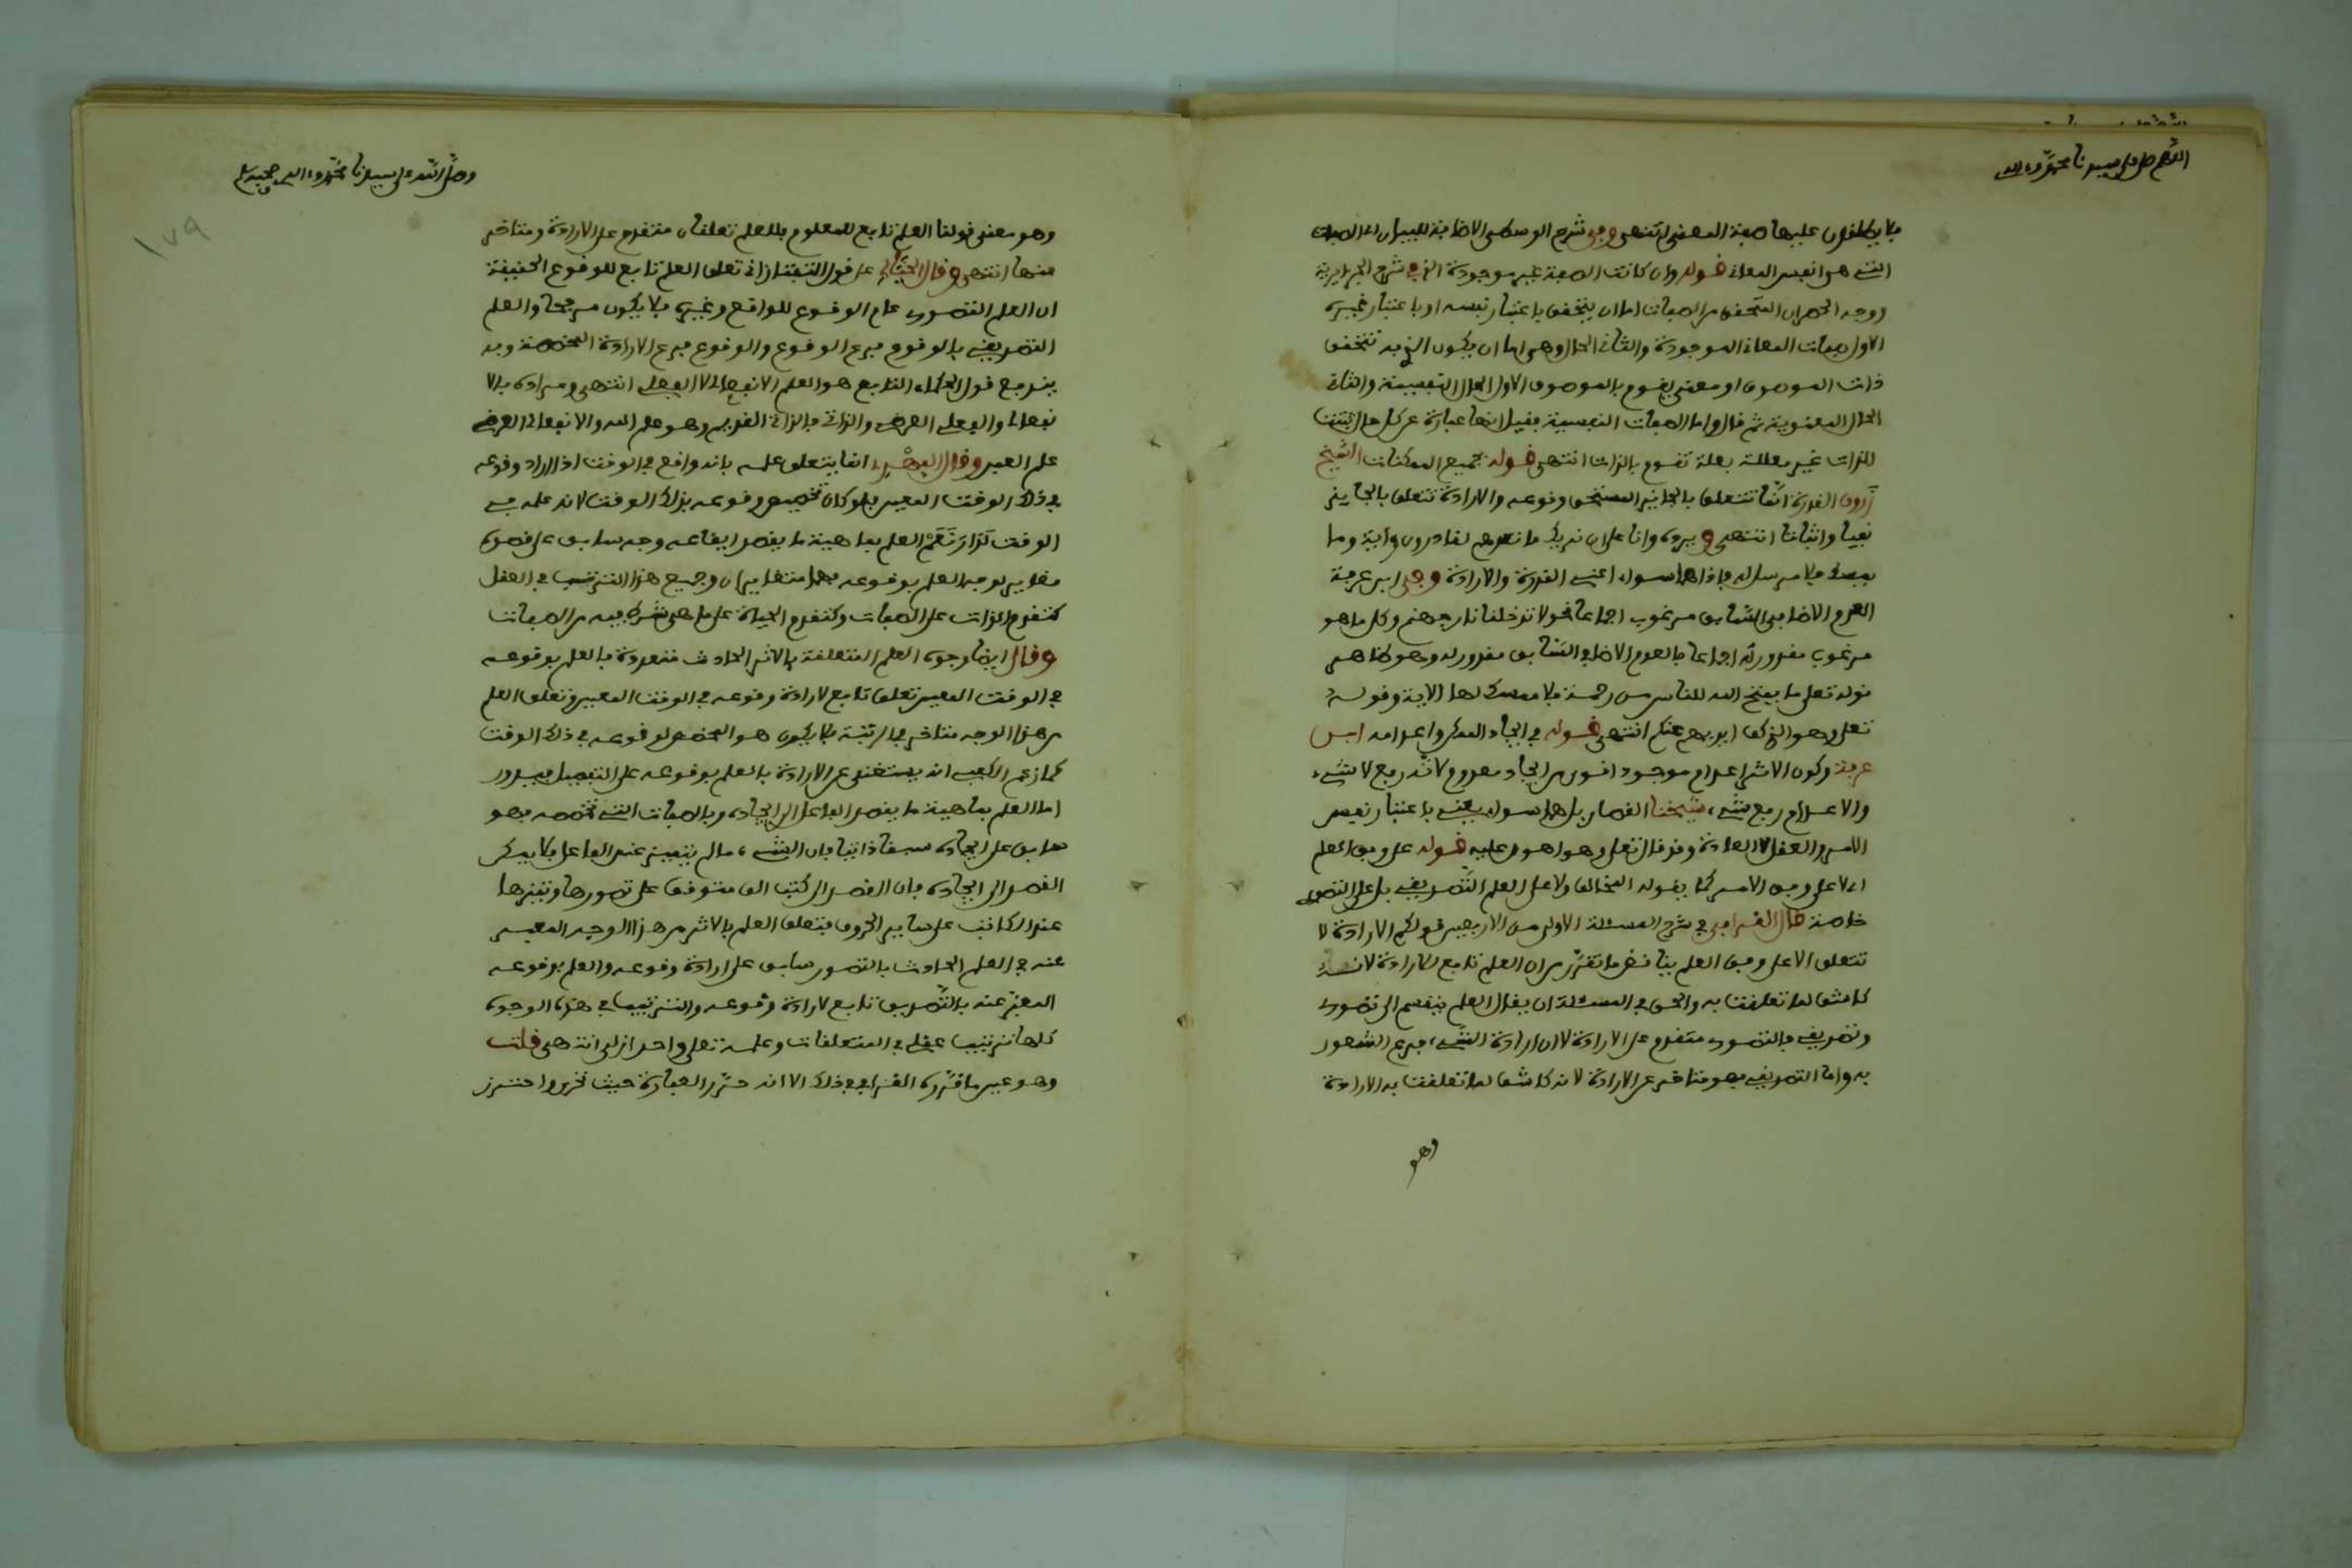 اللهم صل على سيدنا محمد وءاله
فلا يطلقون عليها صفة المعنى انتهى وفي شرح الوسطى الاضافة للبيان اي الصفات
التي هي انفس المعاني قوله وان كانت الصفة غير موجودة الخ في شرح الجزايرية
ووجه الحصر ان المتحقق من الصفات اما ان يتحقق باعتبار نفسه او باعتبار غيره
الاول صفات المعاني الموجودة والثاني الحال وهي اما ان يكون الغير به تتحقق
ذات الموصوف او معنى يقوم بالموصوف الاول الحال النفسية والثاني
الحال المعنوية ثم قال واما الصفات النفسية فقيل انها عبارة عن كل حال ثبتت
للذات غير معللة بعلة تقوم بالذات انتهى قوله بجميع الممكنات الشيخ
زروق القدرة انما تتعلق بالجايز المستحق وقوعه والارادة تتعلق بالجايز
نفيا واثباتا انتهى ويرده وانا على ان نريك ما نعدهم لقادرون وءاية وما
يمسك فلا مرسل له فاذا هما سواء اعني القدرة والارادة وفي ابن عرفة
العدم الاضافي السابق مرغوب اجماعا نحو لا تدخلنا نار جهنم وكل ما هو
مرغوب مقدور له اجماعا فالعدم الاضافي السابق مقدور له وهو ظاهر
قوله تعلى ما يفتح الله للناس من رحمة فلا ممسك لها الاية وقوله
تعلى وهو الذي كف ايديهم عنكم انتهى قوله في ايجاد الممكن واعدامه ابن
عرفة وكون الاثر اعدام موجود اقوى من ايجاد معدوم لانه رفع لا شيء
والاعدام رفع شيء شيخنا القصار بل هما سواء يعني باعتبار نفس
الامر والعقل لا العادة وقد قال تعلى وهو اهون عليه قوله على وفق العلم
اي لا على وفق الامر كما يقوله المخالف ولا على العلم التصديقي بل على التصوري
خاصة قال القرافي في شرح المسئلة الاولى من الاربعين قولكم الارادة لا
تتعلق الا على وفق العلم يناقض ما تقرر من ان العلم تابع للارادة لانه
كاشف لما تعلقت به والحق في المسئلة ان يقال العلم ينقسم الى تصوري
وتصديقي فالتصوري متقدم على الارادة لان ارادة الشيء فرع الشعور
به واما التصديقي فهو متاخر عن الارادة لانه كاشف لما تعلقت به الارادة
وهو
وصلى الله على سيدنا محمد وءاله وصحبه وسلم
١٧٩
وهو معنى قولنا العلم تابع للمعلوم فللعلم تعلقان متقدم على الارادة ومتاخر
عنها انتهى وقال الخيالي على قول التفتازاني تعلق العلم تابع للوقوع الحقيقة
ان العلم التصوري عام الوقوع للواقع وغيره فلا يكون مرجحا والعلم
التصديقي بالوقوع فرع الوقوع والوقوع فرع الارادة المخصصة وبه
يندفع قول الحكماء التابع هو العلم الانفعالي لا الفعلي انتهى ومراده بالا
نفعالي والفعلي العرضي والذاتي فالذاتي القديم وهو علم الله والانفعالي العرضي
علم العبيد وقال الفهري انما يتعلق علمه بانه واقع في الوقت اذا اراد وقوعه
في ذلك الوقت المعين فلو كان تخصيص وقوعه بذلك الوقت لانه علمه في
الوقت لدار نعم العلم بماهية ما يقصد ايقاعه وجه سابق على قصده
مغاير لوجه العلم بوقوعه فهما متغايران وجميع هذا الترتيب في العقل
كتقدم الذات على الصفات وكتقدم الحياة على ما هي شرط فيه من الصفات
وقال ايضا وجوه العلم المتعلقة بالاثر الحادث متعددة فالعلم بوقوعه
في الوقت المعين تعلق تابع لارادة وقوعه في الوقت المعين وتعلق العلم
من هذا الوجه متاخر في الرتبة فلا يكون هو المخصص لوقوعه في ذلك الوقت
كما زعم الكعبي انه يستغنى عن الارادة بالعلم بوقوعه على التفصيل فيدور
اما العلم بماهية ما يقصد الفاعل الى ايجاده وبالصفات التي تخصصه فهو
سابق على ايجاده سبقا ذاتيا فان الشيء ما لم يتميز عند الفاعل فلا يمكن
القصد الى ايجاده فان القصد الى كتب الف متوقف على تصورها وتميزها
عند الكاتب على ساير الحروف فتعلق العلم بالاثر من هذا الوجه المعبر
عنه في العلم الحادث بالتصور سابق على ارادة وقوعه والعلم بوقوعه
المعبر عنه بالتصديق تابع لارادة وقوعه والترتيب في هذه الوجوه
كلها ترتيب عقلي في المتعلقات وعلمه تعلى واحد ازلي انتهى قلت
وهو عين ما قرره القرافي في ذلك الا انه حرر العبارة حيث واحترز